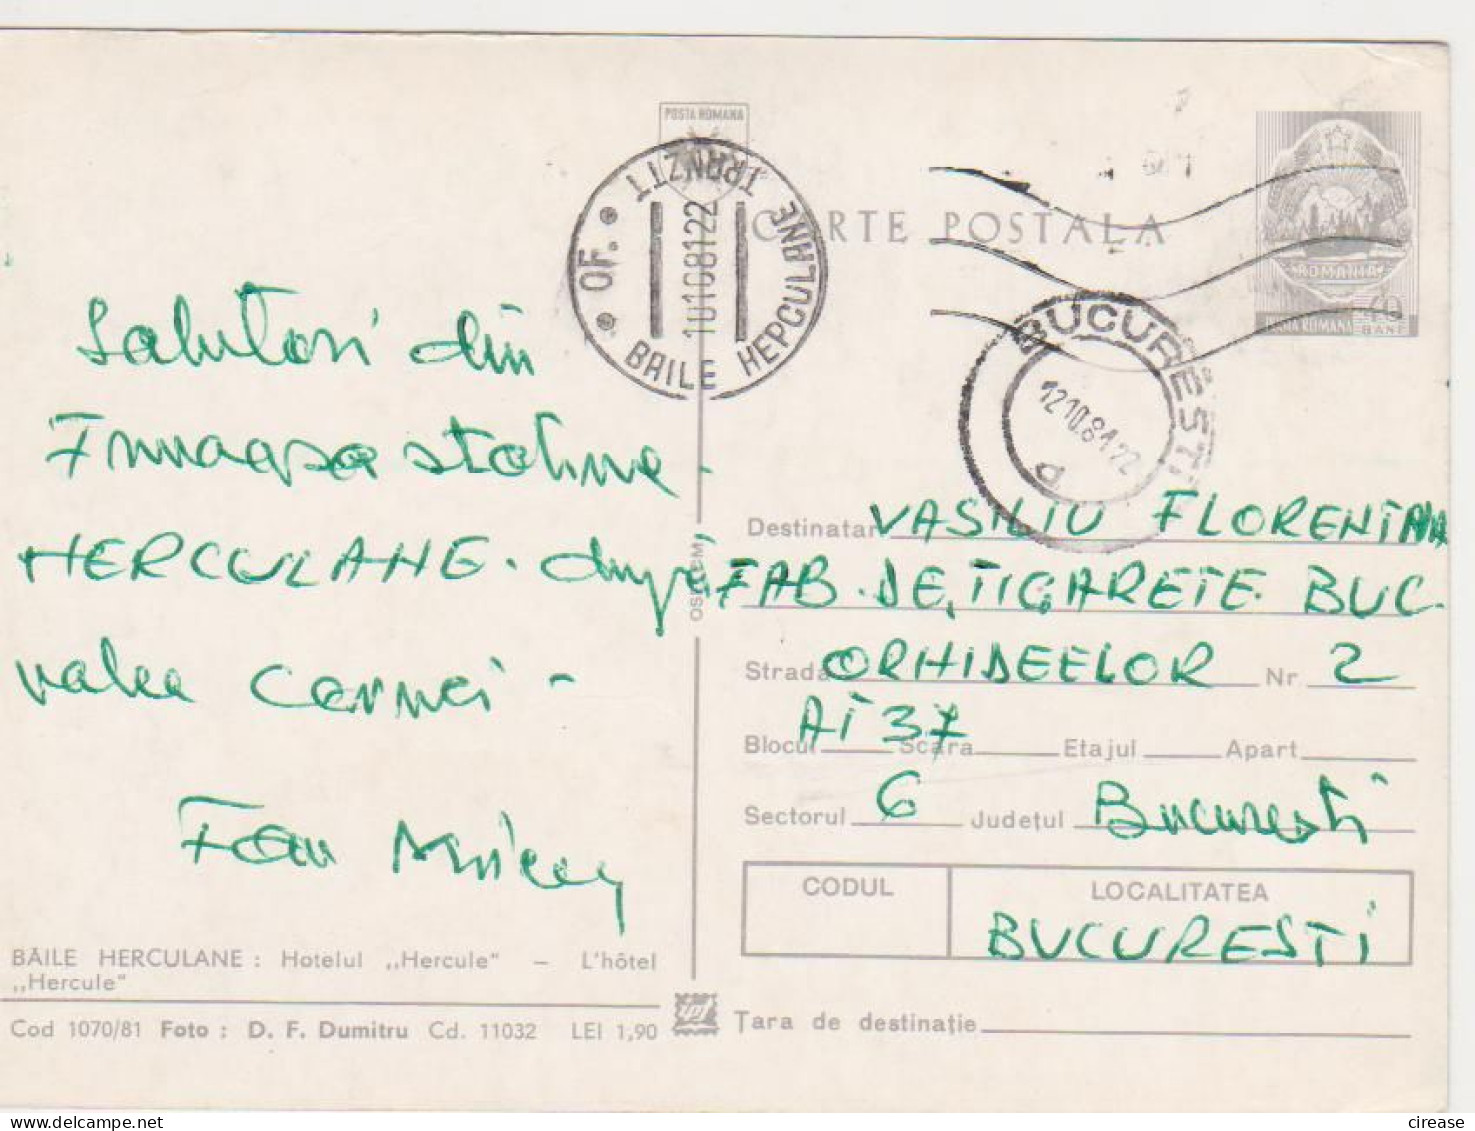 POSTA ROMANA
CARTE POSTALA
ROMANIA
POSTA ROMANA 40 BANI
* OF. *
TRANZIT
BAILE HERCULANE
10108122
BUCURESTI
12.10.81.22
P
Salutari din
frumoasa statiune
HERCULANE. după
valea Cernei -
Fam
BĂILE HERCULANE : Hotelul „Hercule" – L'hôtel
„Hercule"
Cod 1070/81 Foto : D. F. Dumitru Cd. 11032 LEI 1,90
Destinatar VASILIU FLORENTINA
FAB. DE TIGARETE BUC.
Strada ORHIDEELOR Nr 2
AT 37
Blocul Scara Etajul Apart
Sectorul 6 Județul Bucuresti
CODUL LOCALITATEA
BUCURESTI
Țara de destinație